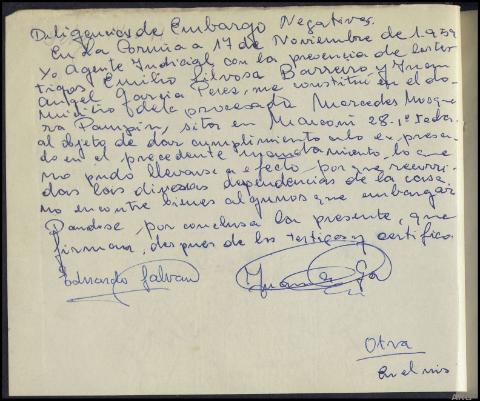 Diligencias de Embargo Negativas.
En La Coruña a 17 de Noviembre de 1.959
Yo Agente Judicial con la presencia de los tes
tigos Emilio Silvosa Barreiro y Juan
Angel Garcia Perez, me constitui en el do-
micilio de la procesada Mercedes Mosque
ra Pampin, sito en Marconi 28-1º
al objeto de dar cumplimiento a lo expresa
do en el precedente mandamiento, lo que
no pudo llevarse a efecto porque recorri
das las diversas dependencias de la casa
no encontre bienes algunos que embargar
Dandose por conclusa la presente, que
firman, despues de los testigos y certifico
Eduardo Galvan
Juan A. Ga
Otra
En el mis